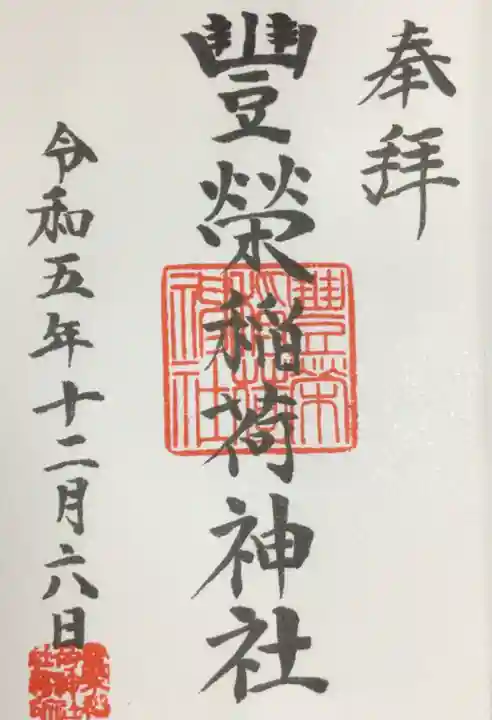 奉拝
豐榮稲荷神社
豊栄稲荷神社
令和五年十二月六日